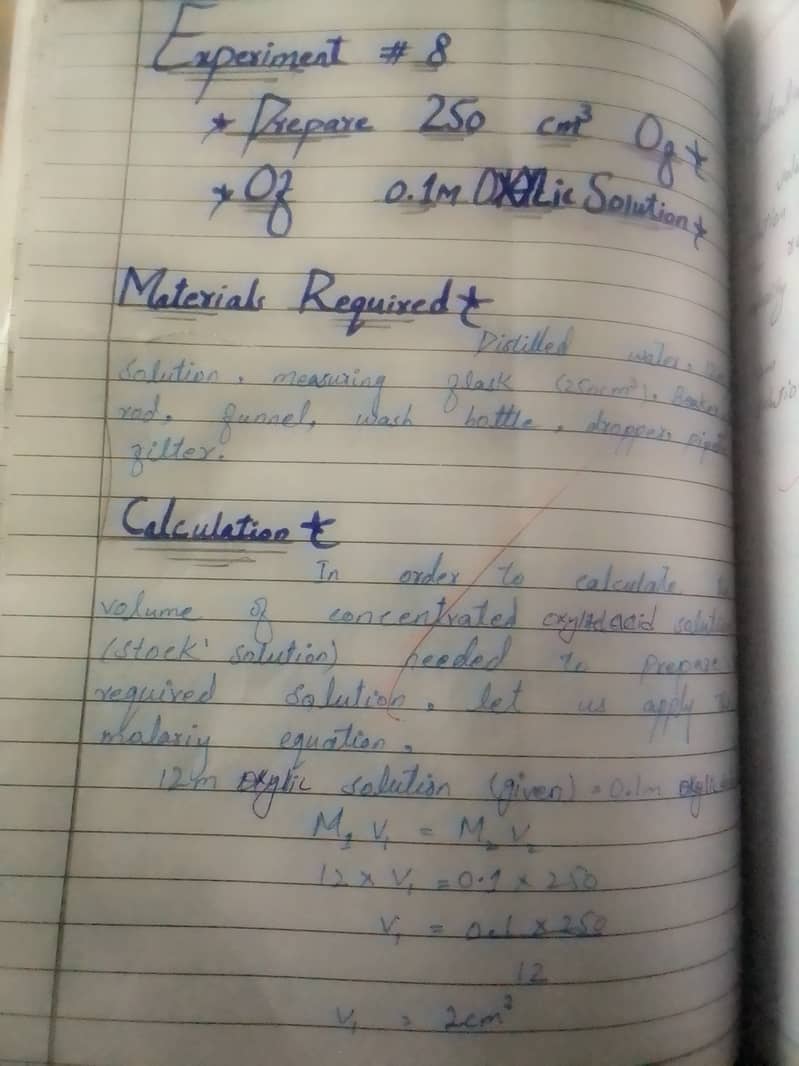 Experiment # 8
* Prepare 250 cm³ Of *
* Of 0.1M Oxalic Solution *
Materials Required *
Distilled water,
Solution, measuring flask (250cm³), Beaker
rod, funnel, wash bottle, dropper, pipette
filter.
Calculation *
In order to calculate
volume of concentrated oxylic acid solution
(stock' solution) needed to prepare
required solution, let us apply the
molariy equation.
12m oxylic solution (given) = 0.1m oxylic
M₁ V₁ = M₂ V₂
12 × V₁ = 0.1 × 250
V₁ = 0.1 × 250
12
V₁ = 2cm³